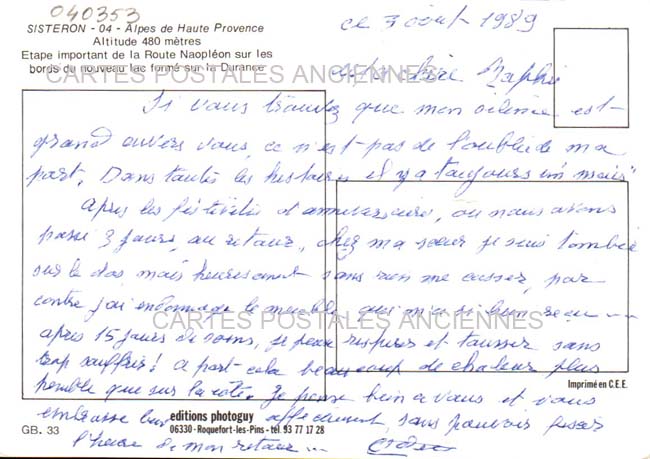 040353
SISTERON - 04 - Alpes de Haute Provence
Altitude 480 mètres
Etape important de la Route Naopléon sur les
bords du nouveau lac formé sur la Durance
ce 3 août 1989
CARTES POSTALES ANCIENNES
Si vous trouvez que mon silence est
grand envers vous, ce n'est pas de l'oubli de ma
part. Dans toutes les histoires il y a toujours un "mais"
Après les festivités d'anniversaire, où nous avons
passé 3 jours, au retour, chez ma sœur je suis tombée
sur le dos mais heureusement sans rien me casser, par
contre j'ai endommagé le meuble qui m'a si bien reçu ---
CARTES POSTALES ANCIENNES
après 15 jours de soins, je peux respirer et tousser sans
trop souffrir! a part cela beaucoup de chaleur plus
pénible que sur la côte. Je pense bien a vous et vous
embrasse bien affectueusement, sans pouvoir fixer
l'heure de mon retour ---
Imprimé en C.E.E.
editions photoguy
06330 - Roquefort-les-Pins - tél. 93 77 17 28
GB. 33